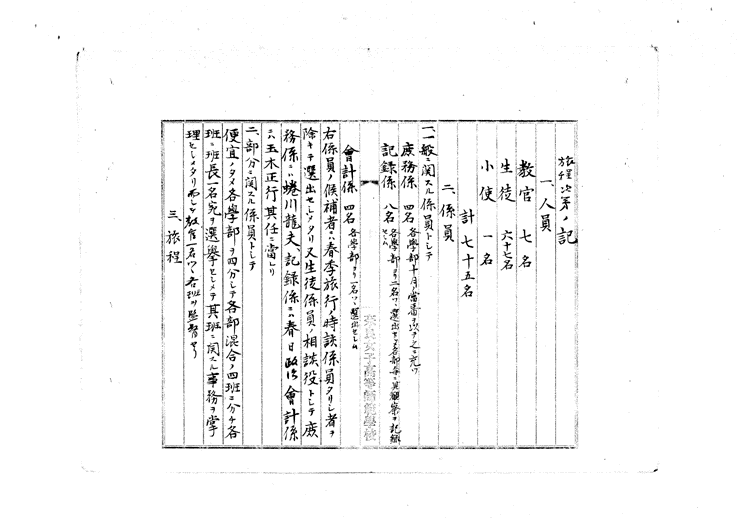 旅程次第ノ記
一、人員
教官 七名
生徒 六十七名
小使 一名
計 七十五名
二、係員
一、一般ニ関スル係員トシテ
庶務係 四名 各學部十月ノ當番ヲ以テ之ニ充ツ
記録係 八名 各學部ヨリ二名ツヽ選出セシメ各部毎ニ其観察ヲ記録セシム
會計係 四名 各學部ヨリ一名ツヽ選出セシム
奈良女子高等師範學校
右係員ノ候補者ハ春季旅行ノ時該係員タリシ者ヲ
除キテ選出セシメタリ又生徒係員ノ相談役トシテ庶
務係ニハ蜷川龍夫、記録係ニハ春日政治會計係
ニハ玉木正行其任ニ當レリ
二、部分ニ関スル係員トシテ
便宜ノタメ各學部ヲ四分シテ各部混合ノ四班ニ分チ各
班ニ班長一名宛ヲ選挙セシメテ其班ニ関スル事務ヲ掌
理セシメタリ而シテ教官一名ツヽ各班ヲ監督セリ
三、旅程